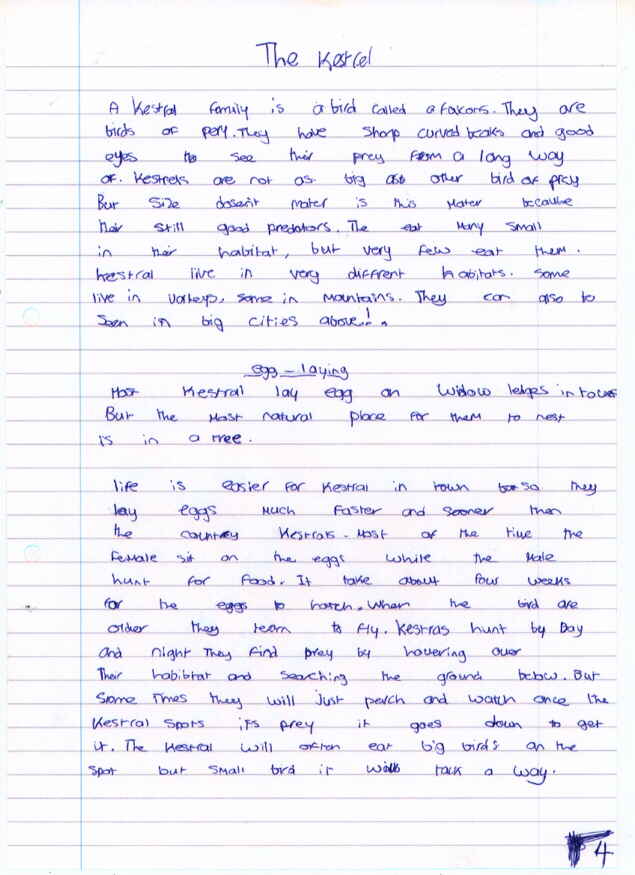 The Kestrel
A Kestral family is a bird called a falcons. They are
birds of pery. They have sharp curved beaks and good
eyes to see their prey from a long way
of. Kestrels are not as big as other bird of prey
But size doesen't mater is this Mater because
their still good predators. The eat Many small
in their habitat, but very few eat them.
Kestral live in very diffrent habitats. some
live in valleys, some in Mountains. They can also to
Seen in big cities above!.
egg - laying
Most Kestral lay egg on widow ledges in towns
But the Most natural place for them to nest
is in a tree.
life is easier for Kestral in town so they
lay eggs Much faster and sooner then
the countrey Kestrals. Most of the time the
female sit on the eggs while the Male
hunt for food. It take about four weeks
for the eggs to hatch. When the bird are
older they learn to fly. Kestras hunt by Day
and night They find prey by hovering over
Their habibtat and searching the ground below. But
some times they will just perch and watch once the
Kestral spots its prey it goes down to get
it. The Kestral will often eat big birds on the
spot but small bird it will tack a way.
4